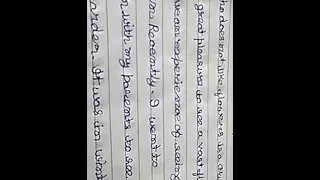 ho does not like flowers is a
great pleasure to see a vast f
ve an experience of seeing
Recently. I went to
n with my parents to see
arden. It was in wint